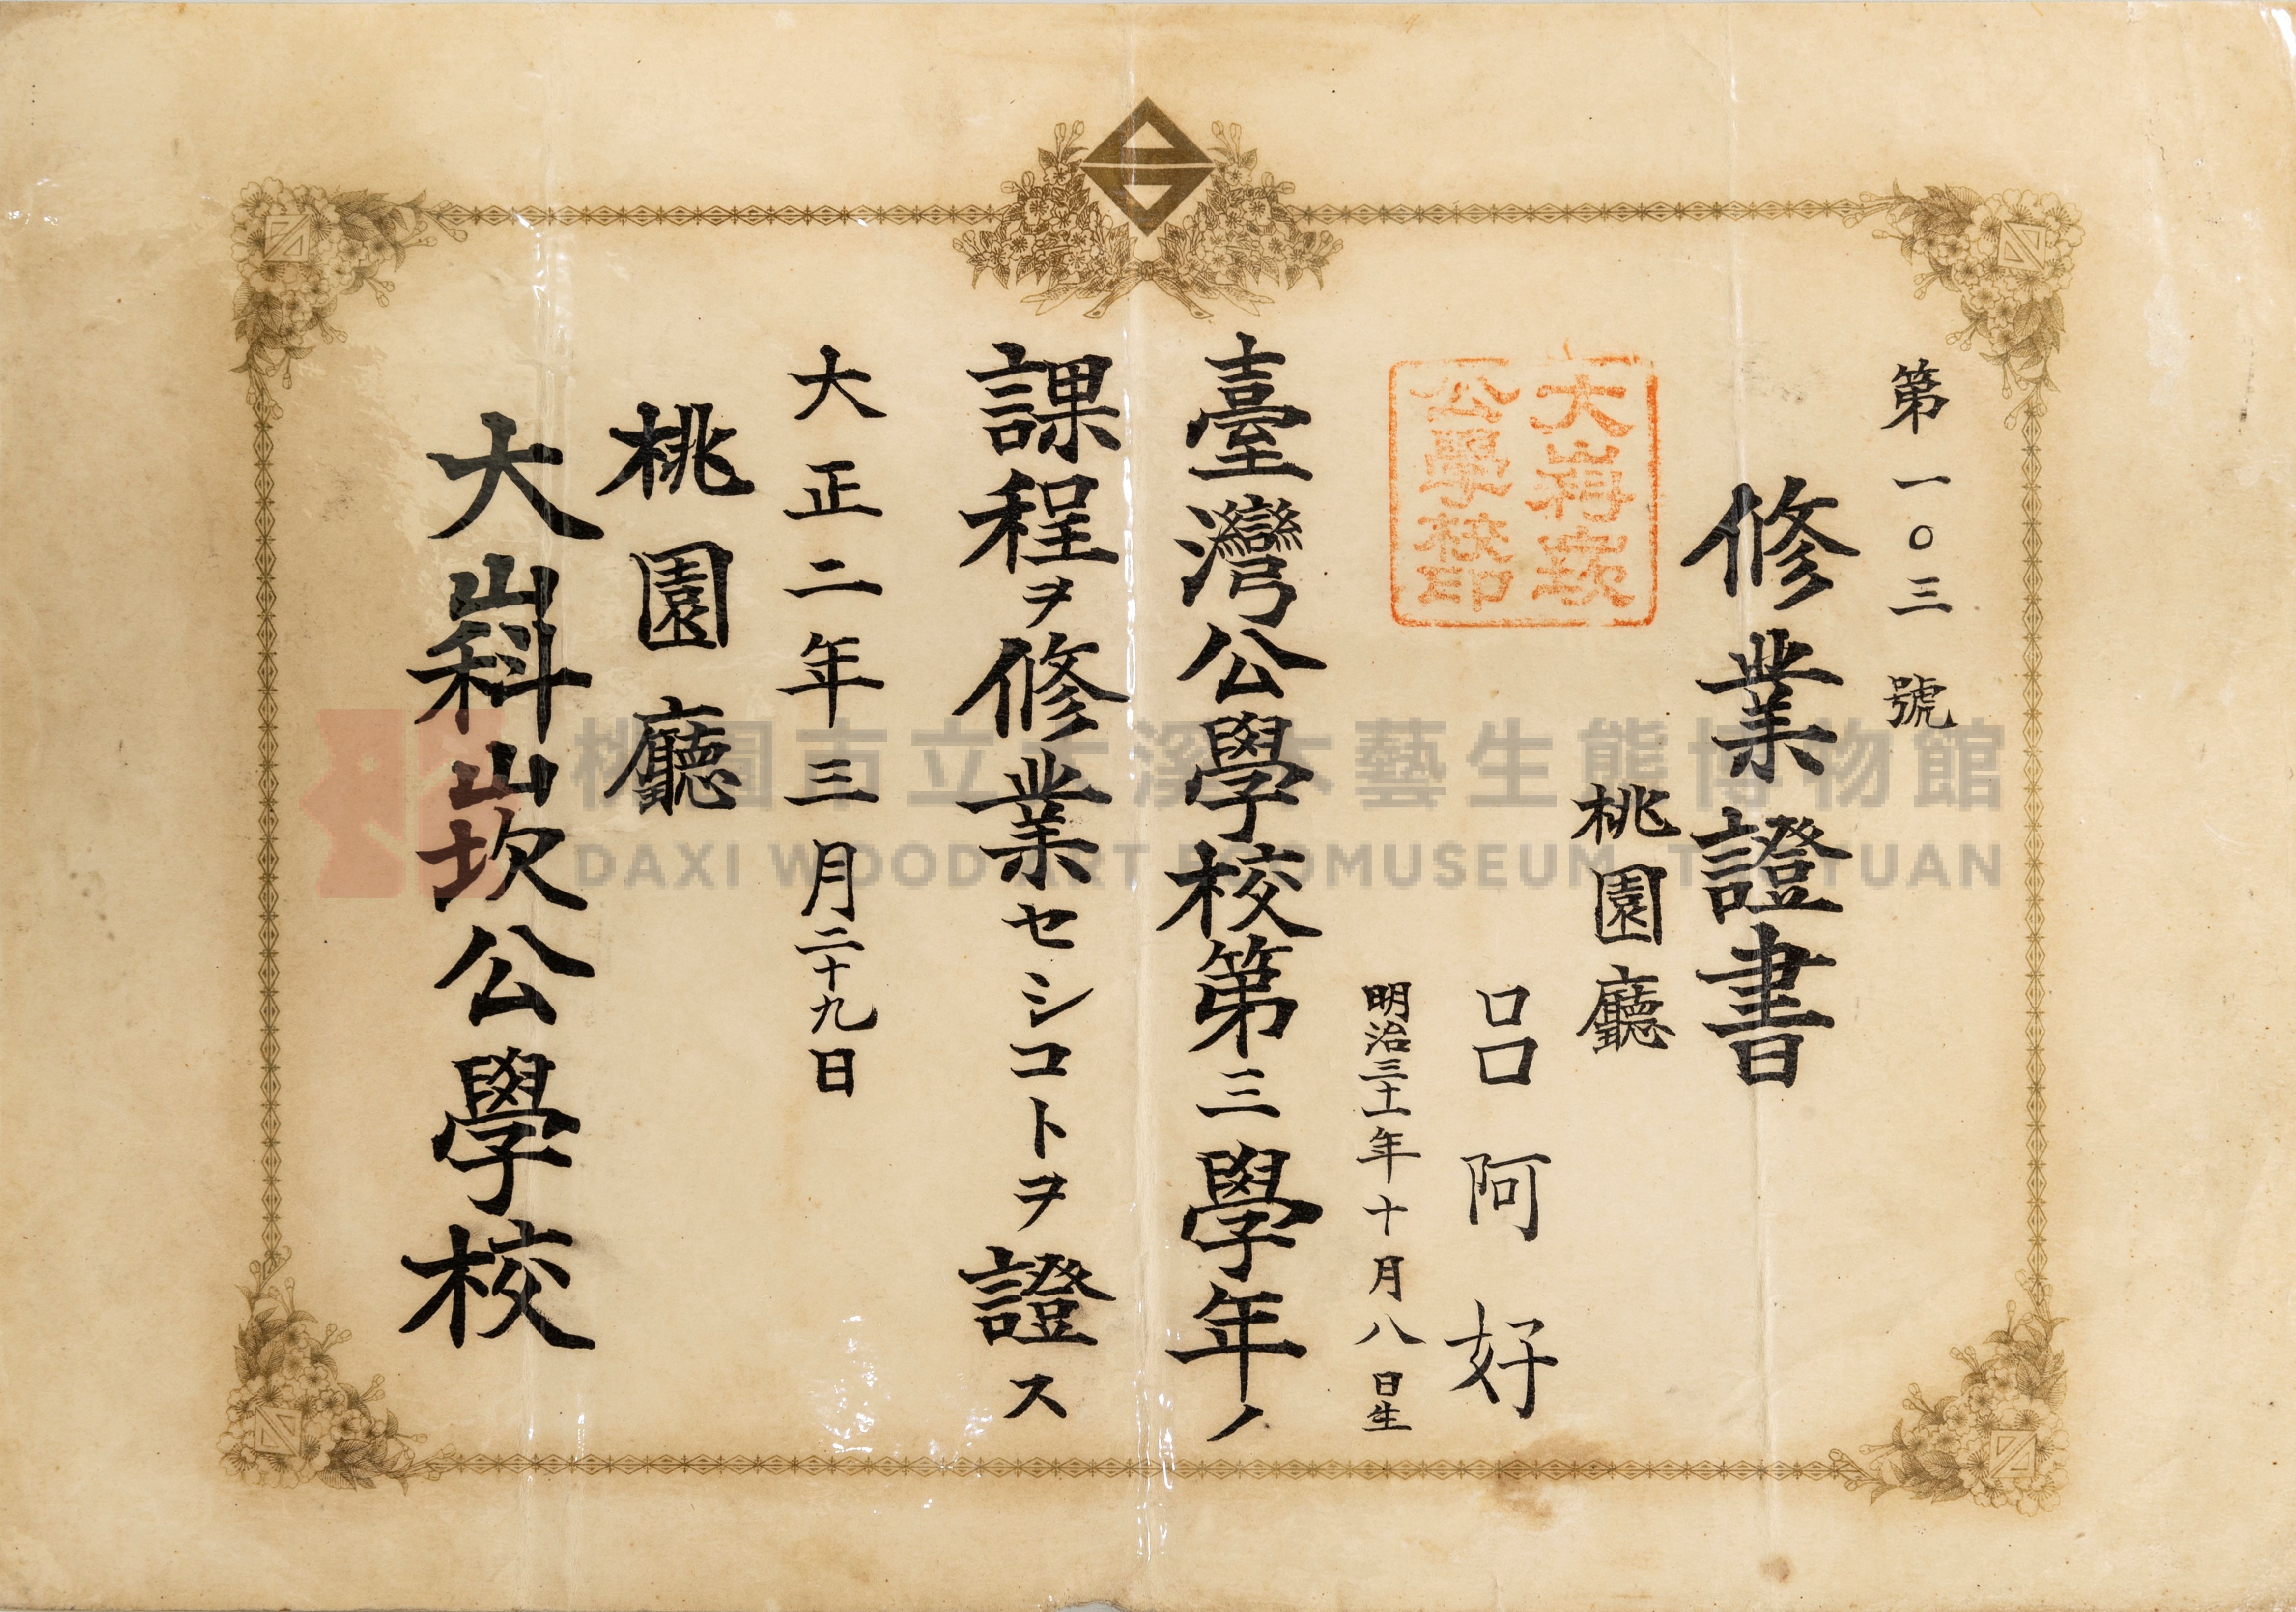 第一〇三號
修業證書
桃園廳
呂阿好
明治三十一年十月八日生
大嵙崁
公學校印
臺灣公學校第三學年ノ
課程ヲ修業セシコトヲ證ス
大正二年三月二十九日
桃園廳
大嵙崁公學校
桃園市立大溪木藝生態博物館
DAXI WOOD ART ECOMUSEUM, TAOYUAN